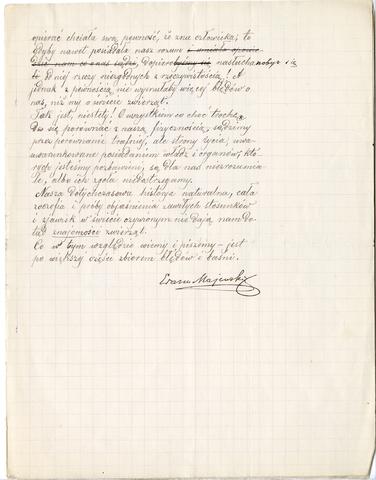 opierać chciała swą pewność, że zna człowieka; to
gdyby nawet posiadała nasz rozum i umiała opowie-
dzieć nam co o nas sądzi, dopiero nasłuchanobyr się
to od niej rzeczy niezgodnych z rzeczywistością! A
jednak z pewnością nie wymiałaby więcej błędów o
nas, niż my o świecie zwierząt.
Tak jest, niestety! O wszystkiem co choć trochę
daje się porównać z naszą fizycznością, sądzimy
przez porównanie trafniej, ale strony życia, uwa-
runkowane posiadaniem władz i organów, któ-
rych jesteśmy pozbawieni, są dla nas niezrozumia-
łe, albo ich zgoła niedostrzegamy.
Nasza dotychczasowa historja naturalna, cała
zoologia i próby objaśnienia zawiłych stosunków
i zjawisk w świecie ożywionym nie dają nam do-
tąd znajomości zwierząt.
Co w tym względzie wiemy i piszemy – jest
po większej części zbiorem błędów i baśni.
Erazm Majewski